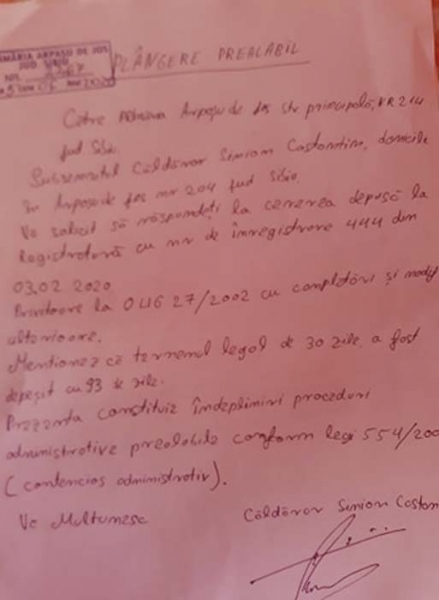 PRIMĂRIA ARPAȘU DE JOS
JUD SIBIU
NR.
PLÂNGERE PREALABIL
Către Primăria Arpașu de Jos str principală, NR 214
jud Sibiu.
Subsemnatul Căldărar Simion Costantin, domicile
în Arpașu de Jos nr 204 jud Sibiu
Vă solicit să răspundeți la cererea depusă la
Registratură cu nr de înregistrare 444 din
03.02 2020.
Privitoare la OUG 27/2002 cu completări și modif
ulterioare.
Menționez că termenul legal de 30 zile, a fost
depășit cu 93 de zile.
Prezenta constituie îndepliniri proceduri
administrative prealabile conform legi 554/200
(contencios administrativ).
Vă Mulțumesc
Căldărar Simion Costan